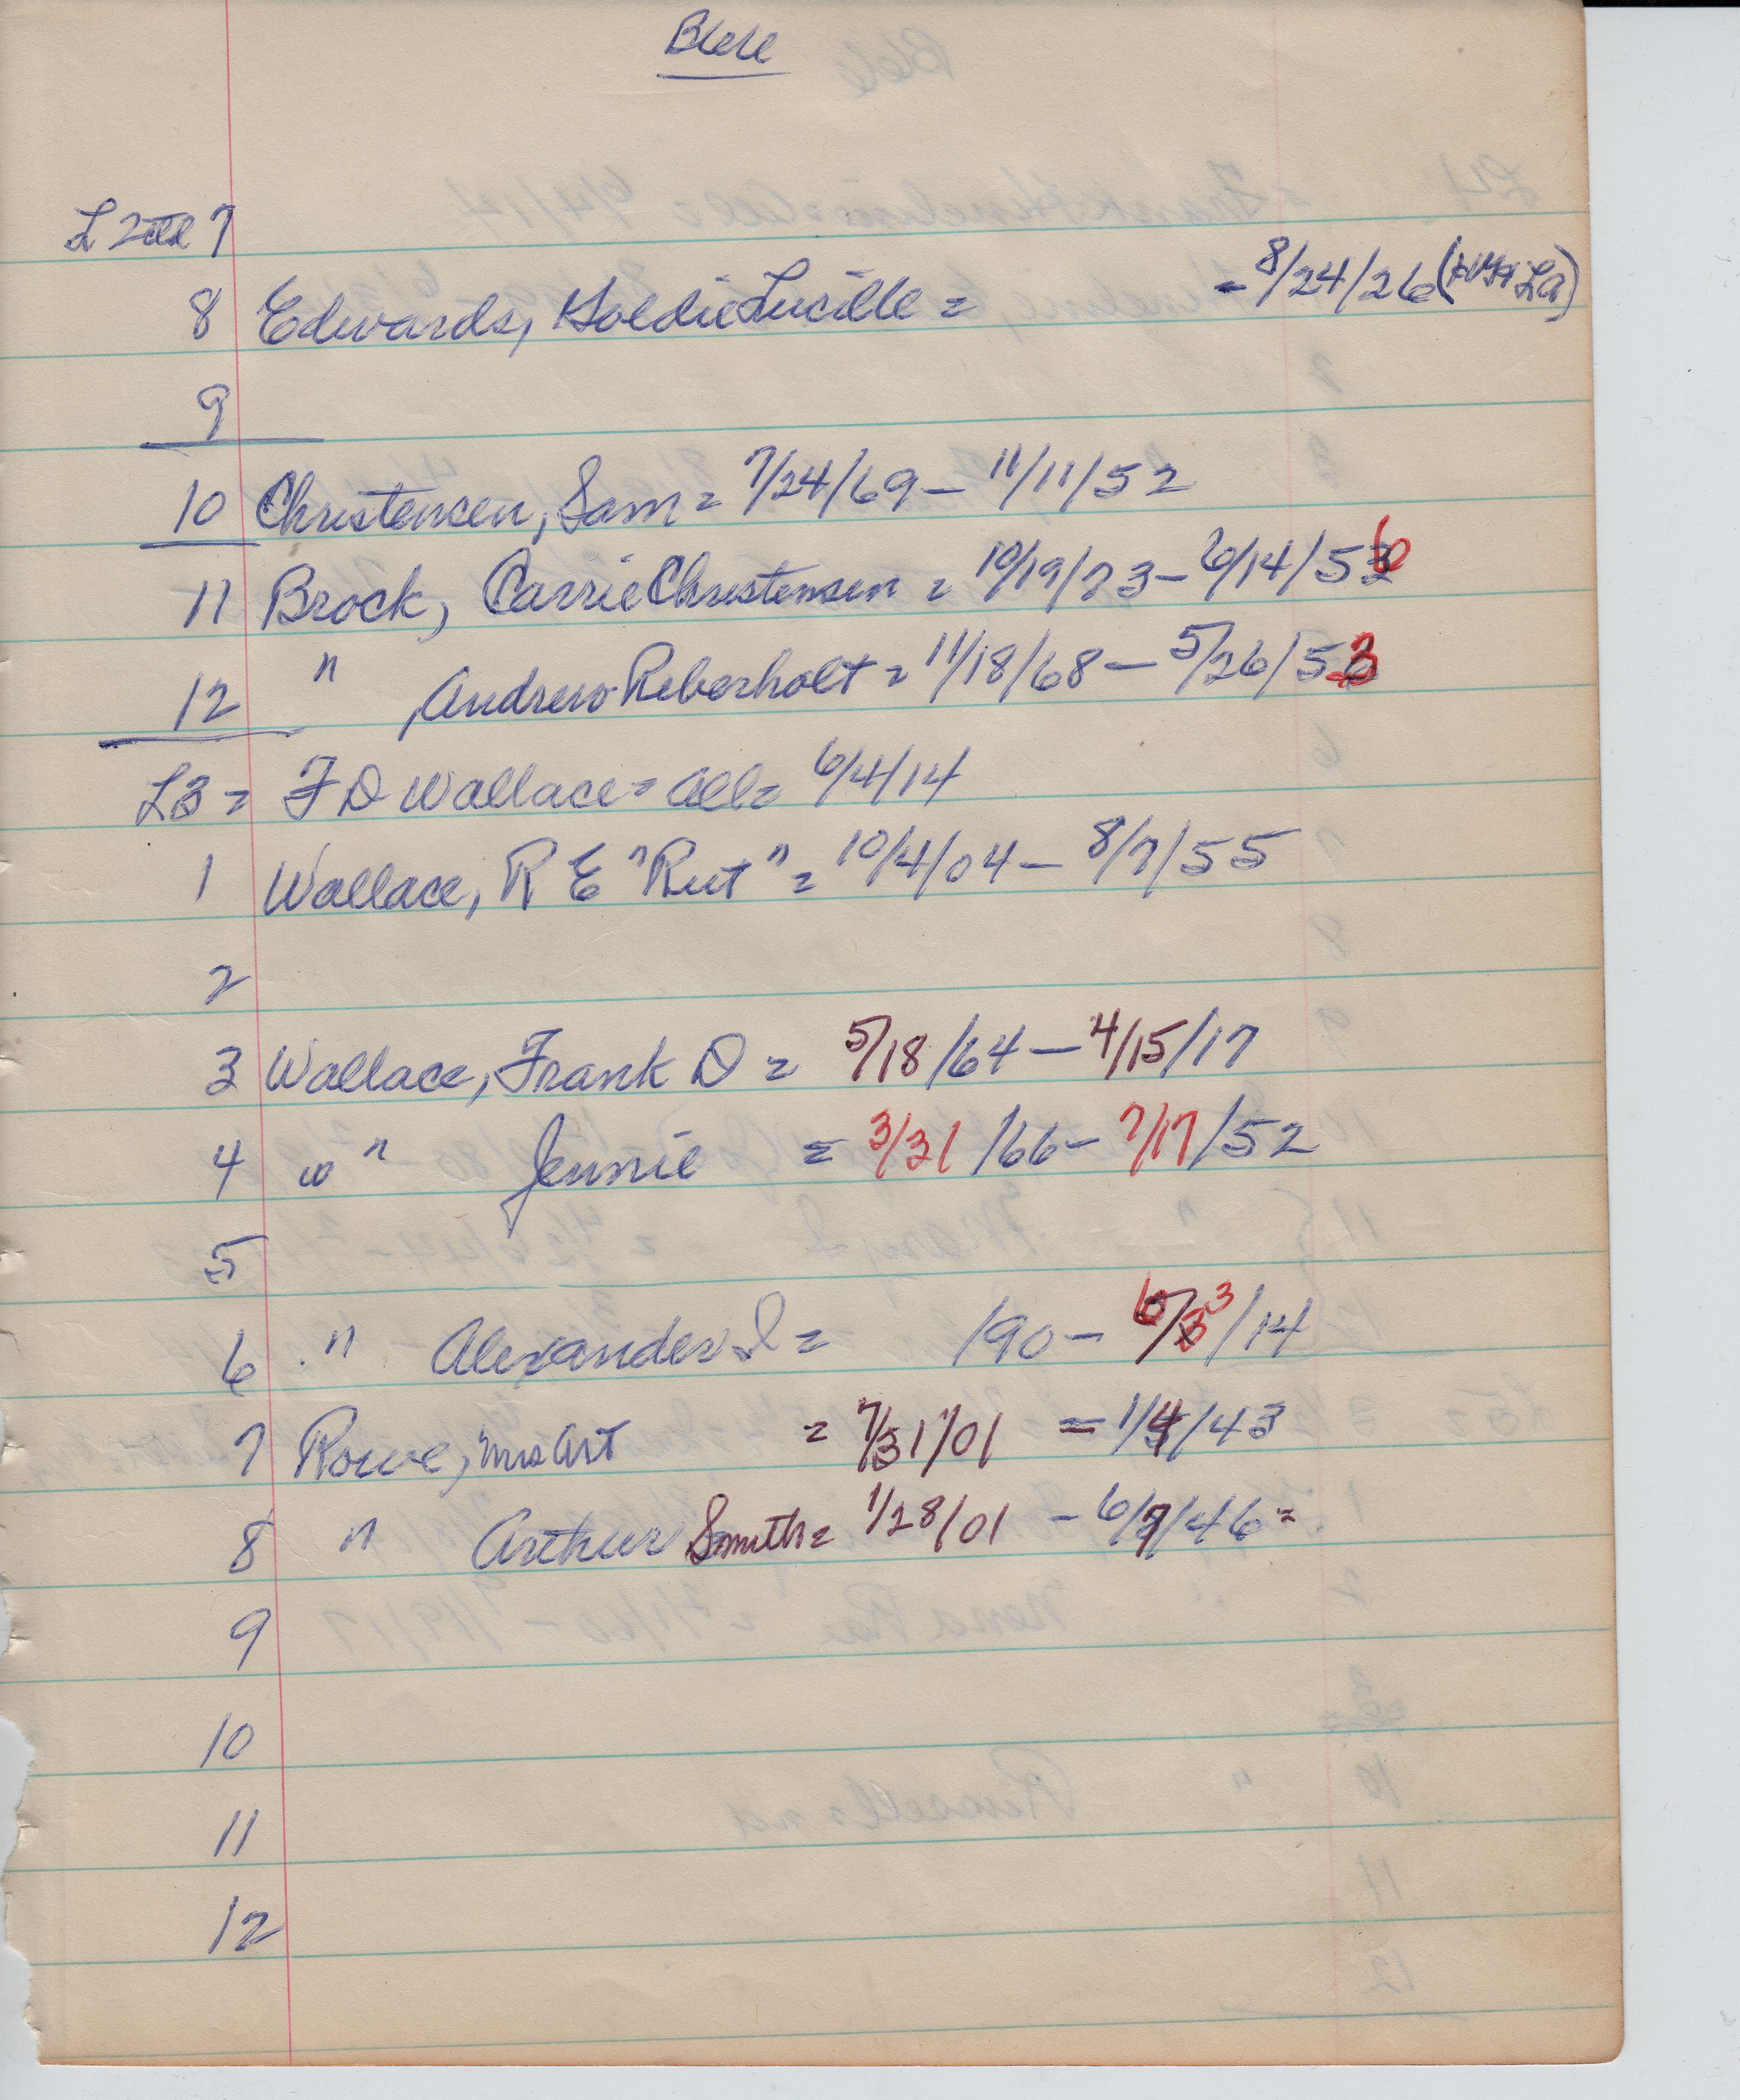 Bl
L2 7
8 Edwards, Goldie Lucille = - 8/24/26 (
9
10 Christensen, Sam = 7/24/69 - 11/11/52
11 Brock, Carrie Christensen = 10/19/73 - 6/14/56
12 " , Andrew Reberholt = 11/18/68 - 5/26/53
L3 = F D Wallace = all = 6/4/14
1 Wallace, R E "Rut" = 10/4/04 - 8/7/55
2
3 Wallace, Frank D = 5/18/64 - 4/15/17
4 " Jennie = 3/31/66 - 7/17/52
5
6 " Alexander I = /90 - 6/3/14
7 Rowe, Mrs Art = 7/31/01 = 1/4/43
8 " Arthur Smith = 1/28/01 - 6/7/46 =
9
10
11
12